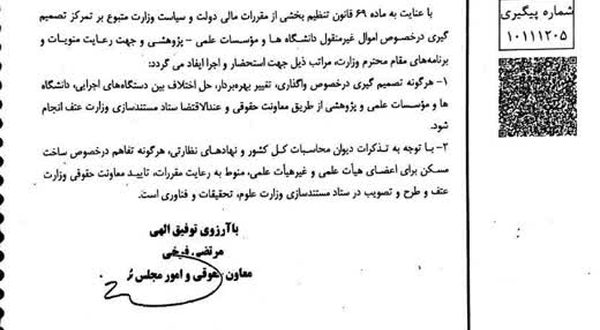 شماره پیگیری
۱۰۱۱۱۲۰۵
با عنایت به ماده ۶۹ قانون تنظیم بخشی از مقررات مالی دولت و سیاست وزارت متبوع بر تمرکز تصمیم
گیری درخصوص اموال غیرمنقول دانشگاه ها و مؤسسات علمی - پژوهشی و جهت رعایت منویات و
برنامه‌های مقام محترم وزارت، مراتب ذیل جهت استحضار و اجرا ایفاد می گردد:
۱- هرگونه تصمیم گیری درخصوص واگذاری، تغییر بهره‌بردار، حل اختلاف بین دستگاه‌های اجرایی، دانشگاه
ها و مؤسسات علمی و پژوهشی از طریق معاونت حقوقی و عندالاقتضا ستاد مستندسازی وزارت عتف انجام
شود.
۲- با توجه به تذکرات دیوان محاسبات کل کشور و نهادهای نظارتی، هرگونه تفاهم درخصوص ساخت
مسکن برای اعضای هیأت علمی و غیرهیأت علمی، منوط به رعایت مقررات، تایید معاونت حقوقی وزارت
عتف و طرح و تصویب در ستاد مستندسازی وزارت علوم، تحقیقات و فناوری است.
با آرزوی توفیق الهی
مرتضی فرخی
معاون حقوقی و امور مجلس